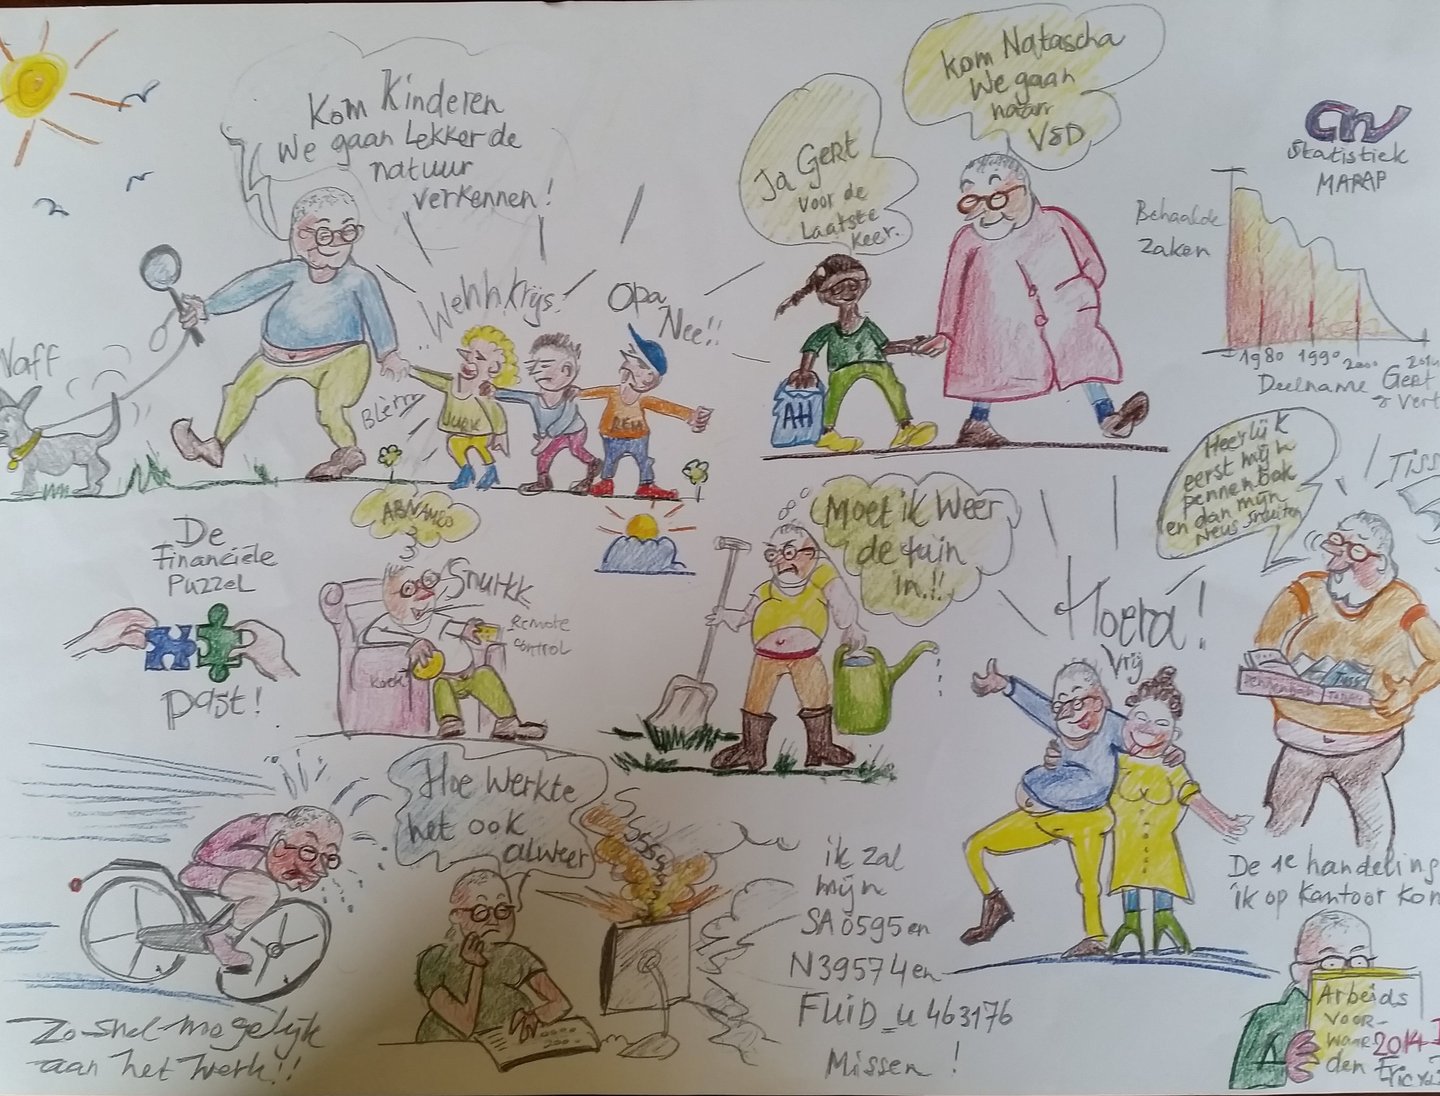 Kom Kinderen
We gaan Lekker de
natuur
verkennen!
Waff
"Wehh. Krijs."
Blèrrr
Opa
Nee!!
JURK
Ja Gert
voor de
Laatste
Keer.
Kom Natascha
We gaan
naar
V&D
AH
Statistiek
MARAP
Behaalde
Zaken
1980 1990 2000
Deelname Gert
Heerlijk
eerst mijn
pennenbak
en dan mijn
Neus
De
Financiële
Puzzel
past!
ABNAMRO
Snurkk
Remote
control
Koek
Moet ik Weer
de tuin
in.!!
Hoera!
Vrij
De 1e handeling
ik op Kantoor
Zo snel mogelijk
aan het werk!!
Hoe Werkte
het ook
alweer
SSSSSS
ik zal
mijn
SA0595 en
N39574 en
FUiD_u463176
Missen!
Arbeids
Voor-
waar
den
2014